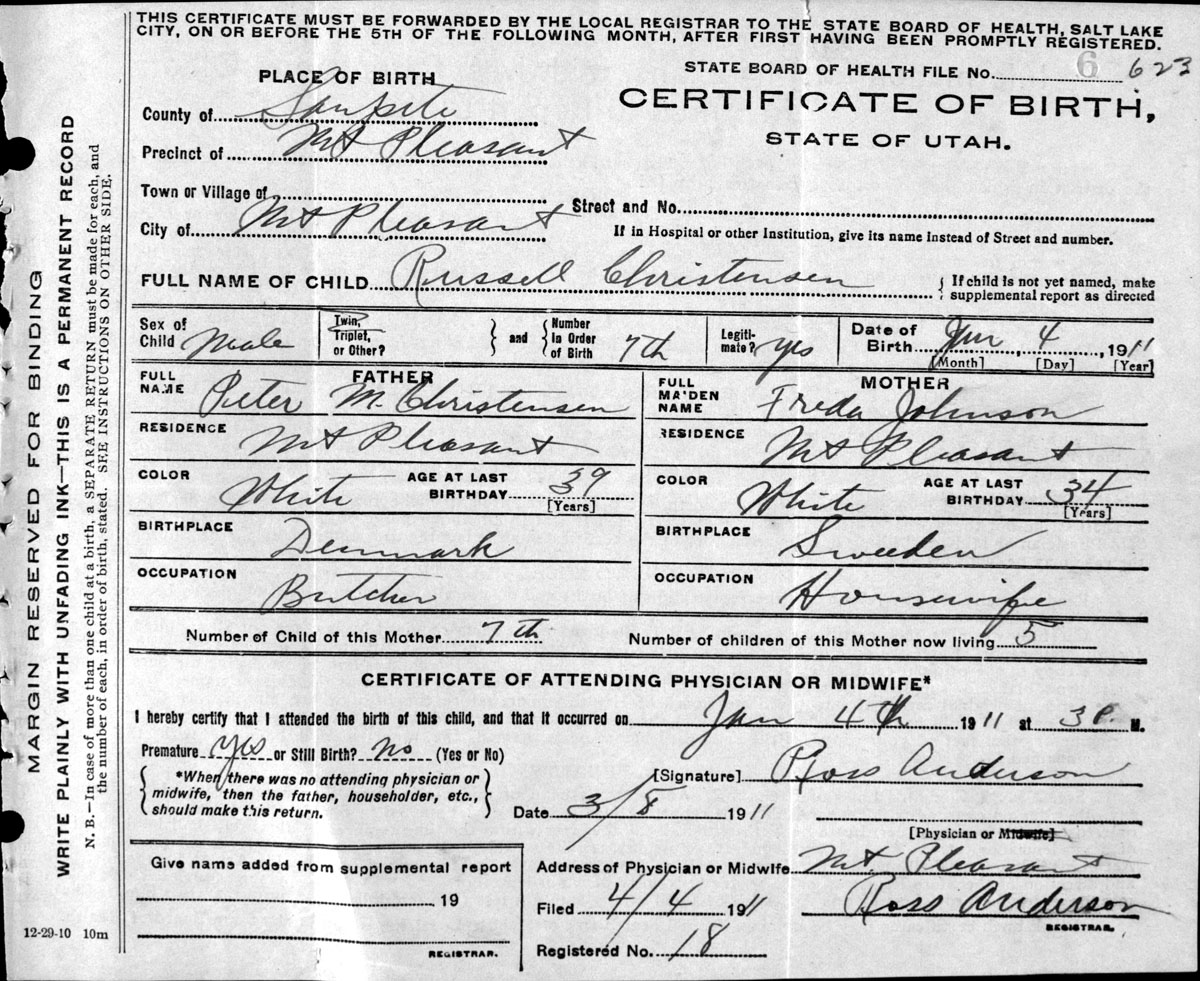 THIS CERTIFICATE MUST BE FORWARDED BY THE LOCAL REGISTRAR TO THE STATE BOARD OF HEALTH, SALT LAKE
CITY, ON OR BEFORE THE 5TH OF THE FOLLOWING MONTH, AFTER FIRST HAVING BEEN PROMPTLY REGISTERED.
STATE BOARD OF HEALTH FILE No. 6 623
PLACE OF BIRTH
CERTIFICATE OF BIRTH,
STATE OF UTAH.
County of Sanpete
Precinct of Mt Pleasant
Town or Village of
Street and No.
City of Mt Pleasant
If in Hospital or other Institution, give its name instead of Street and number.
FULL NAME OF CHILD Russell Christensen { If child is not yet named, make
supplemental report as directed
Sex of
Child Male
Twin,
Triplet,
or Other?
} and {
Number
in Order
of Birth 7th
Legiti-
mate? yes
Date of
Birth Jan, 4, 1911
[Month] [Day] [Year]
FATHER
FULL
NAME Peter M. Christensen
RESIDENCE Mt Pleasant
COLOR White
AGE AT LAST
BIRTHDAY 39
[Years]
BIRTHPLACE Denmark
OCCUPATION Butcher
MOTHER
FULL
MAIDEN
NAME Freda Johnson
RESIDENCE Mt Pleasant
COLOR White
AGE AT LAST
BIRTHDAY 34
[Years]
BIRTHPLACE Sweeden
OCCUPATION Housewife
Number of Child of this Mother 7th Number of children of this Mother now living 5
CERTIFICATE OF ATTENDING PHYSICIAN OR MIDWIFE*
I hereby certify that I attended the birth of this child, and that it occurred on Jan 4th 1911 at 3 P. M.
Premature yes or Still Birth? no (Yes or No)
{ *When there was no attending physician or
midwife, then the father, householder, etc.,
should make this return. }
[Signature] Ross Anderson
Date 3/8 1911
[Physician or Midwife]
Address of Physician or Midwife Mt. Pleasant
Filed 4/4 1911 Ross Anderson
REGISTRAR.
Registered No. 18
Give name added from supplemental report
19
REGISTRAR.
12-29-10 10m
MARGIN RESERVED FOR BINDING
WRITE PLAINLY WITH UNFADING INK—THIS IS A PERMANENT RECORD
N. B.—In case of more than one child at a birth, a SEPARATE RETURN must be made for each, and
the number of each, in order of birth, stated. SEE INSTRUCTIONS ON OTHER SIDE.